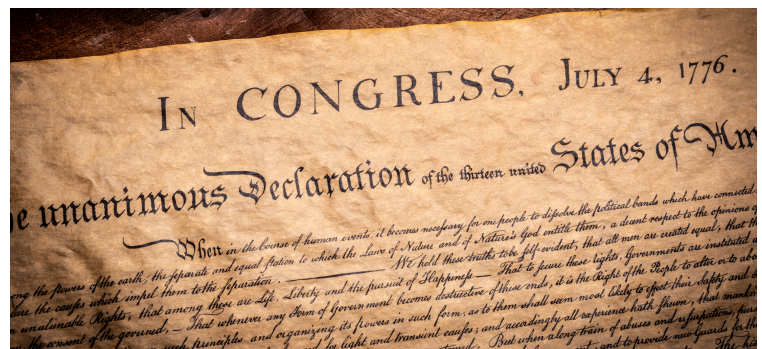 In CONGRESS, July 4, 1776.
he unanimous Declaration of the thirteen united States of Am
When in the Course of human events, it becomes necessary for one people to dissolve the political bands which have connected
ong the powers of the earth, the separate and equal station to which the Laws of Nature and of Nature's God entitle them, a decent respect to the opinions o
are the causes which impel them to the separation. — We hold these truths to be self-evident, that all men are created equal, that th
n unalienable Rights, that among these are Life, Liberty and the pursuit of Happiness — That to secure these rights, Governments are instituted a
the consent of the governed, — That whenever any Form of Government becomes destructive of these ends, it is the Right of the People to alter or to abo
such principles and organizing its powers in such form, as to them shall seem most likely to effect their Safety and
for light and transient causes; and accordingly all experience hath shewn, that mankin
But when a long train of abuses and usurpations, pur
and to provide new Guards for th